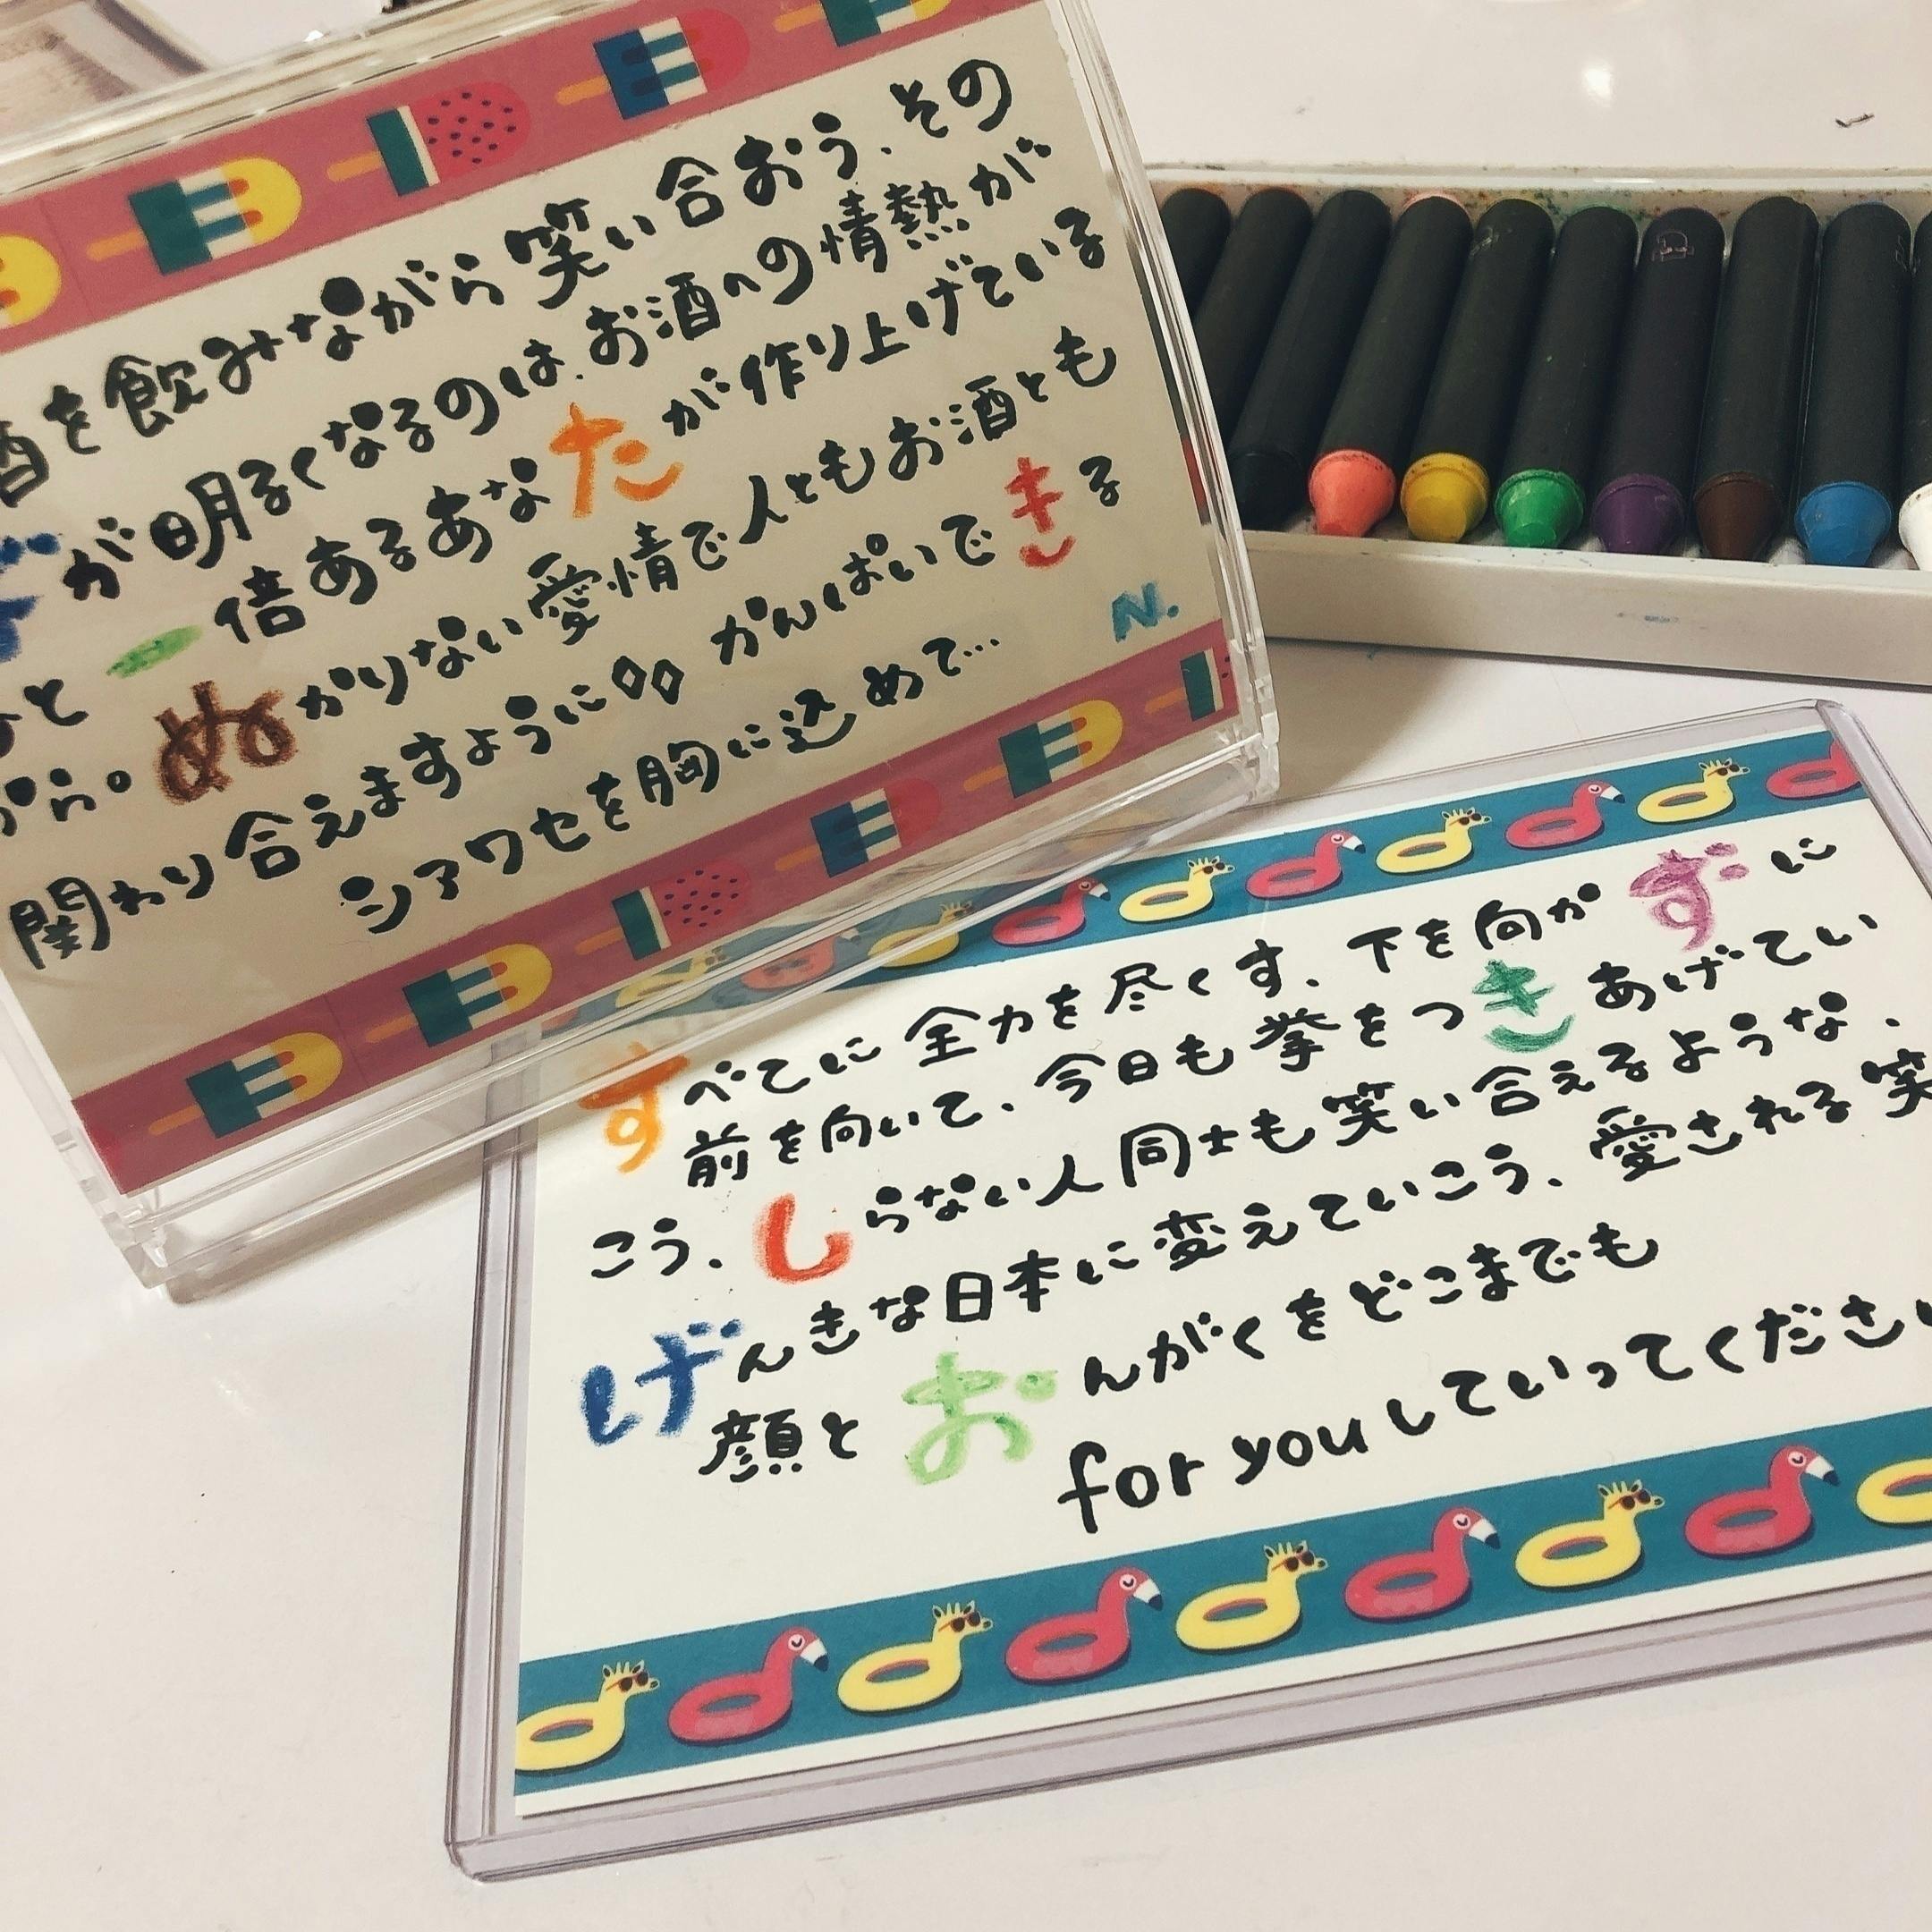 酒を飲みながら笑い合おう、その
が明るくなるのは、お酒への情熱が
と一倍あるあなたが作り上げている
から。ぬかりない愛情で人ともお酒とも
関わり合えますように♢♢ かんぱいできる
シアワセを胸に込めて…
N.
すべてに全力を尽くす、下を向かずに
前を向いて、今日も拳をつきあげてい
こう、しらない人同士も笑い合えるような、
げんきな日本に変えていこう、愛される笑
顔とおんがくをどこまでも
for youしていってください